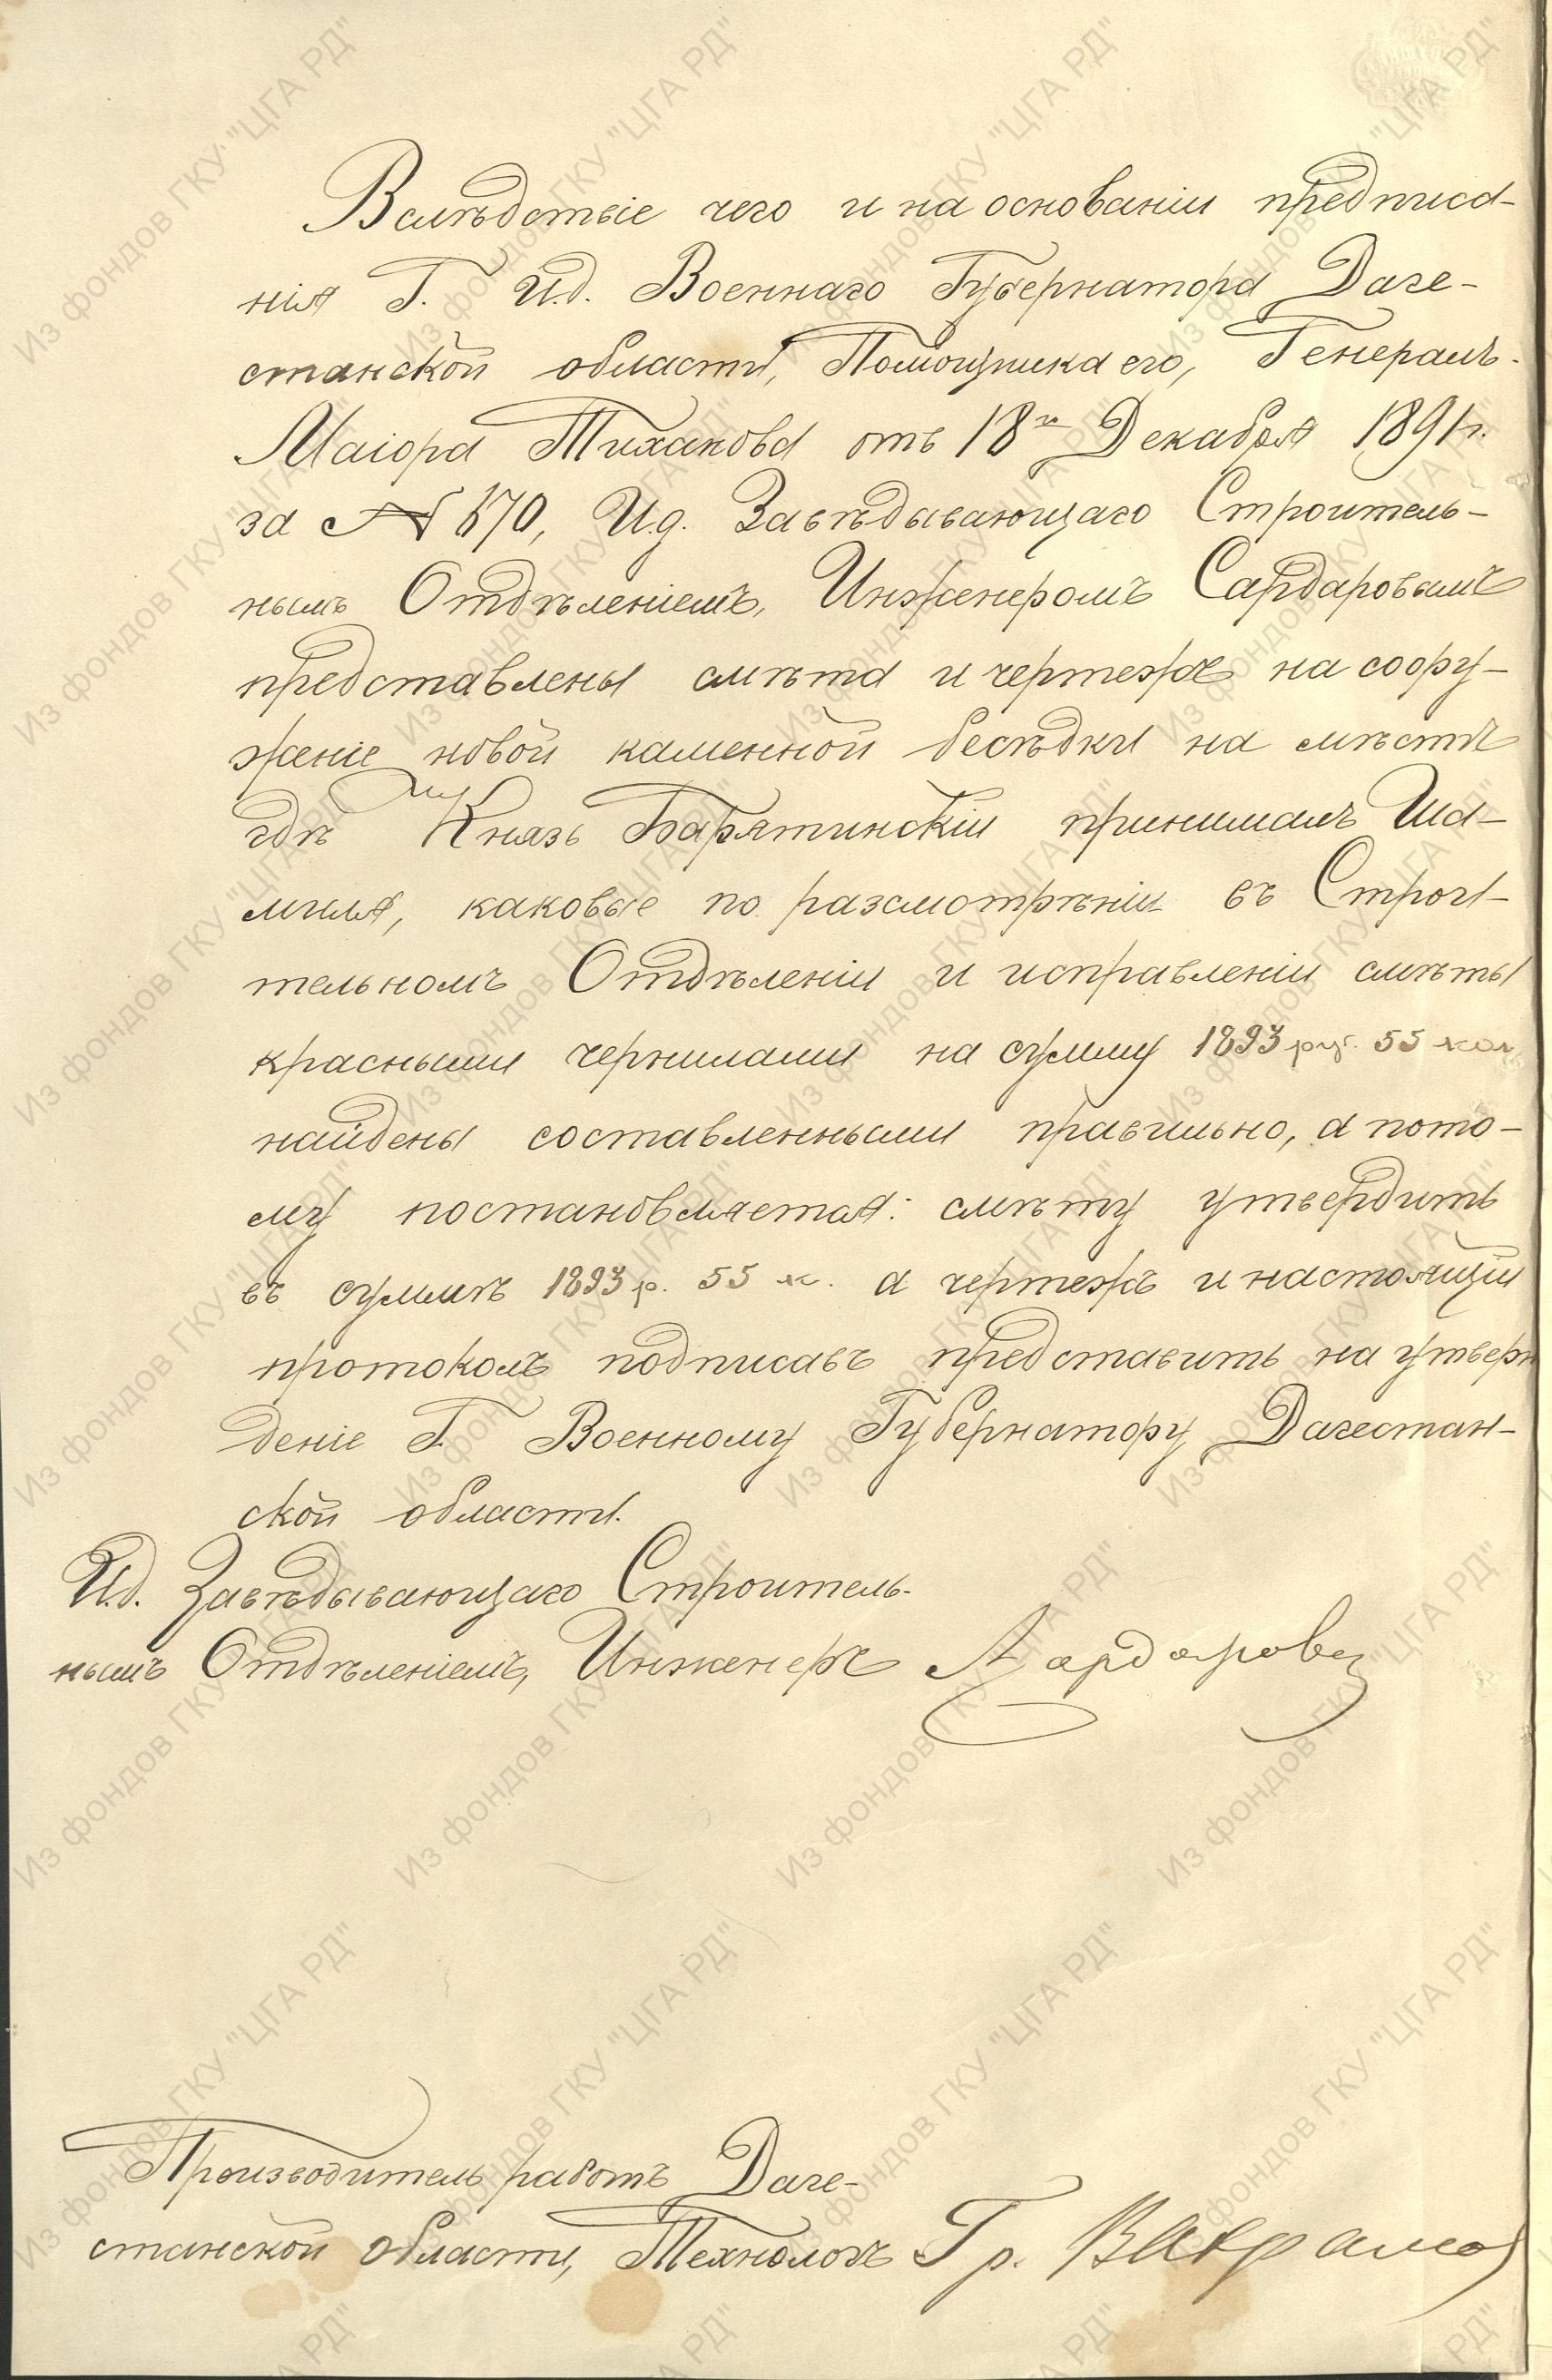 Вслѣдствіе чего и на основаніи предписа-
нія Г. И.д. Военнаго Губернатора Даге-
станской области, Помощника его, Генералъ-
Маіора Тиханова отъ 18го Декабря 1891 г.
за № 870, И.д. Завѣдывающаго Строитель-
нымъ Отдѣленіемъ, Инженеромъ Сардаровымъ
представлены смѣта и чертежъ на соору-
женіе новой каменной бесѣдки на мѣстѣ
гдѣ Князь Барятинскій принималъ Ша-
миля, каковые по разсмотрѣніи въ Строи-
тельномъ Отдѣленіи и исправленіи смѣты
красными чернилами на сумму 1893 руб. 55 коп
найдены составленными правильно, а пото-
му постановляется: смѣту утвердить
въ суммѣ 1893 р. 55 к. а чертежъ и настоящій
протоколъ подписавъ представить на утверж
деніе Г. Военному Губернатору Дагестан-
ской области.
И.д. Завѣдывающаго Строитель-
нымъ Отдѣленіемъ, Инженеръ Сардаровъ
Производитель работъ Даге-
станской области, Технологъ Гр.
Из фондов ГКУ "ЦГА РД"